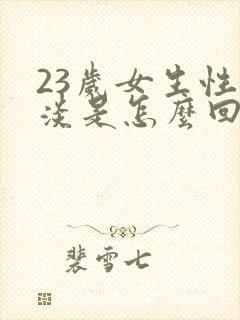 23歲女生性
淡是怎麼回
裴雪七